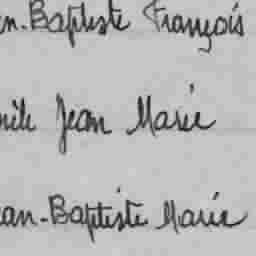 en-Baptiste François
mile Jean Marie
ean-Baptiste Marie